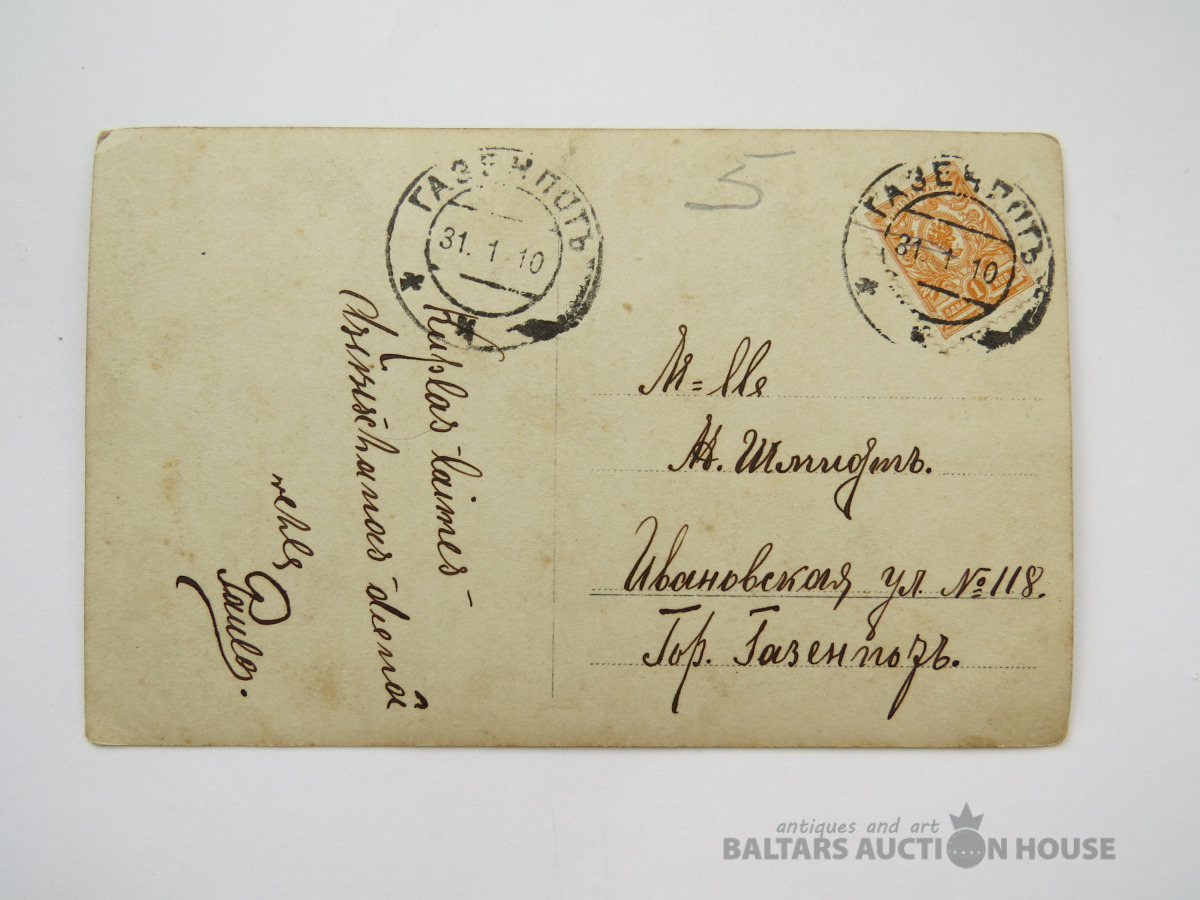 ГАЗЕНПОТЪ
31. 1 10
5
ГАЗЕНПОТЪ
31. 1 10
1
Kuplas laimes
dienā
wehle
Paula.
M=lle
Шмидтъ.
Ивановская ул. № 118.
Гор. Газенпотъ.
antiques and art
BALTARS AUCTION HOUSE